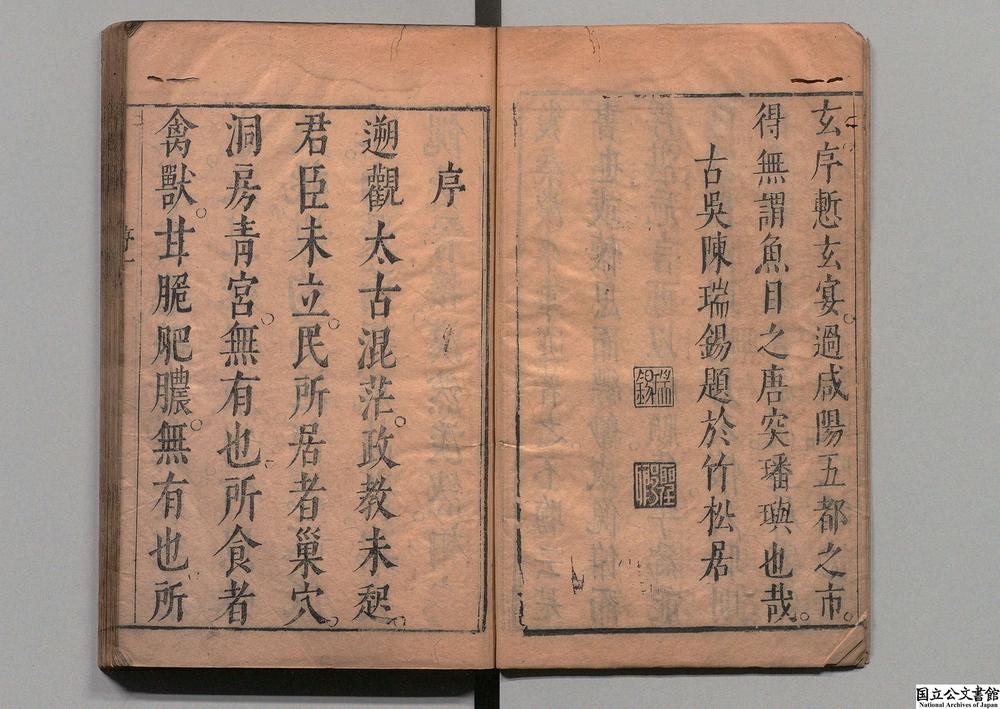 玄序慙玄宴。過咸陽五都之市。
得無謂魚目之唐突璠璵也哉。
古吳陳瑞錫題於竹松居
序
遡觀太古混茫。政教未起。
君臣未立。民所居者巢穴。
洞房青宮。無有也所食者
禽獸。甘脆肥膿。無有也所
序一
国立公文書館
National Archives of Japan